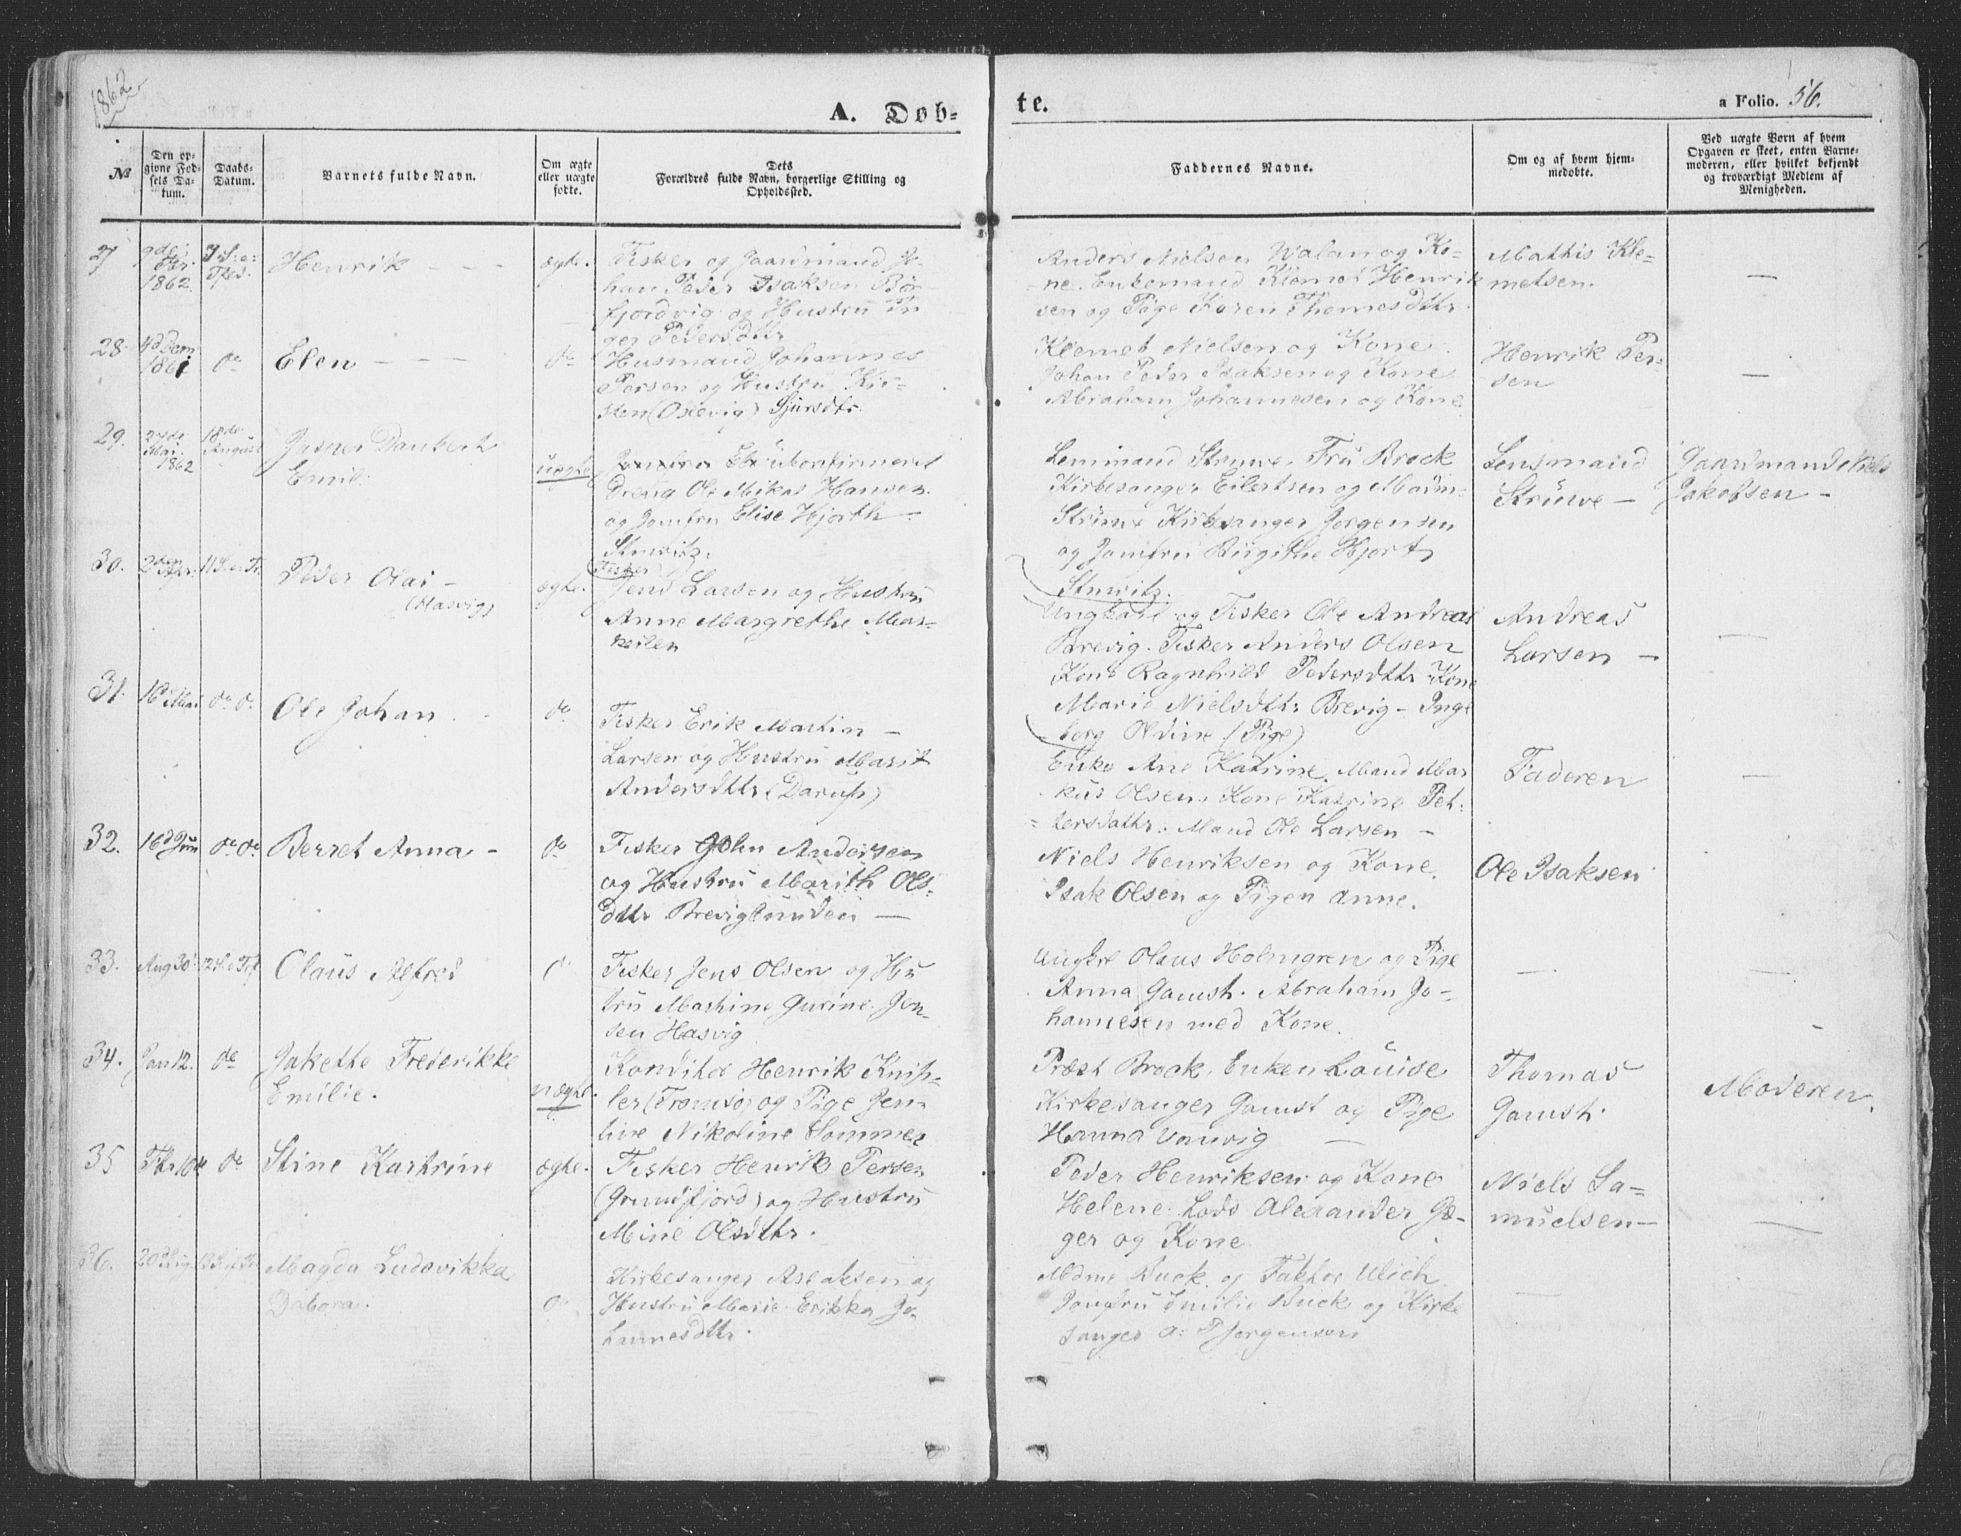 1862
A. Døb-
te.
a Folio. 56.
№
Den op-
givne Fød-
sels Da-
tum.
Daabs-
Datum.
Barnets fulde Navn.
Om ægte
eller uægte
fødte.
Dets
Forældres fulde Navn, borgerlige Stilling og
Opholdssted.
Faddernes Navne.
Om og af hvem hjem-
medøbte.
Ved uægte Børn af hvem
Opgaven er skeet, enten Barne-
moderen, eller hvilket bekjendt
og troværdigt Medlem af
Menigheden.
27
1862
Henrik - - -
ægte.
Fisker og Gaardmand Jo-
han Peder Isaksen Bør-
fjordvig og Hustru In
ger Pedersdttr
Anders Nielsen Walan og Ko-
ne. Enkemand Klemet Henrik
sen og Pige Karen Thomesdttr
Mathis Kle-
metsen.
—
28.
1861
do
Elen - - -
do
Husmand Johannes
Persen og Hustru Kir-
sten (Oxevig) Sjursdtr.
Klemet Nielsen og Kone.
Johan Peder Isaksen og Kone
Abraham Johannesen og Kone
Henrik Per-
sen
—
29.
27de
Mai
1862
18de
August
Jasper Daubert
Emil.
uægte
ukonfirmeret
Dreng Ole Mikas Hansen
og Jomfru Elise Hjorth
Stuwitz.
Lensmand Struwe. Fru Brock
Kirkesanger Eilertsen og Madm-
Struwe Kirkesanger Jørgensen
og Jomfru Birgithe Hjort
Stuwitz.
Lensmand
Struwe -
Gaardmand Niels
Jakobsen -
30.
Peder Olai -
(Hasvig)
ægte.
(Fisker)
Jens Larsen og Hustru
Anne Margrethe Mar-
keilen
Ungkarl og Fisker Ole Andreas
Brevig. Fisker Anders Olsen
Kone Ragnhild Pedersdttr Kone
Marie Nielsdttr Brevig - Inge
borg Oldine (Pige)
Andreas
Larsen -
—
31.
16 Mai
do do
Ole Johan
do
Fisker Erik Martin -
Larsen og Hustru Marit
Andersdttr (Darup)
Enke Ane Katrine. Mand Mar
kus Olsen. Kone Katrine Pet-
tersdattr. Mand Ole Larsen -
Faderen
—
32.
16d Juni
do do
Berret Anna -
do
Fisker John Andersen
og Hustru Marith Ols-
dttr Brevig
Niels Henriksen og Kone.
Isak Olsen og Pigen Anne.
Ole Isaksen
33.
Aug 30
Claus Alfred
do
Fisker Jens Olsen og Hu
tru Mashine Gurine Jon-
sen Hasvig
Ungkrl Olaus Holmgren og Pige
Anna Gamst. Abraham Jo-
hannesen med Kone.
—
-
34.
Jan 12.
do
Jakette Frederikke
Emilie.
uægte.
Konditor Henrik
(Tromsø) og Pige Jen-
sine Nikoline Sommer
Præst Brock. Enken Louise
Kirkesanger Gamst og Pige
Hanna
Thomas
Gamst.
Moderen.
35
do
Stine Kastrine
ægte.
Fisker Henrik Persen
(Grundfjord) og Hustru
Mine Olsdttr.
Peder Henriksen og Kone
Helene. Lods Alexander Jæ-
ger og Kone
Niels Sa-
muelsen -
—
36.
Magda Ludovikka
Debora.
do
Kirkesanger Aslaksen og
Hustru Marie Erikka Jo-
hannesdttr.
Mdme Buck. og Faktor Ulich
Jomfru Emilie Buck og Kirke
sanger Jørgensen
—